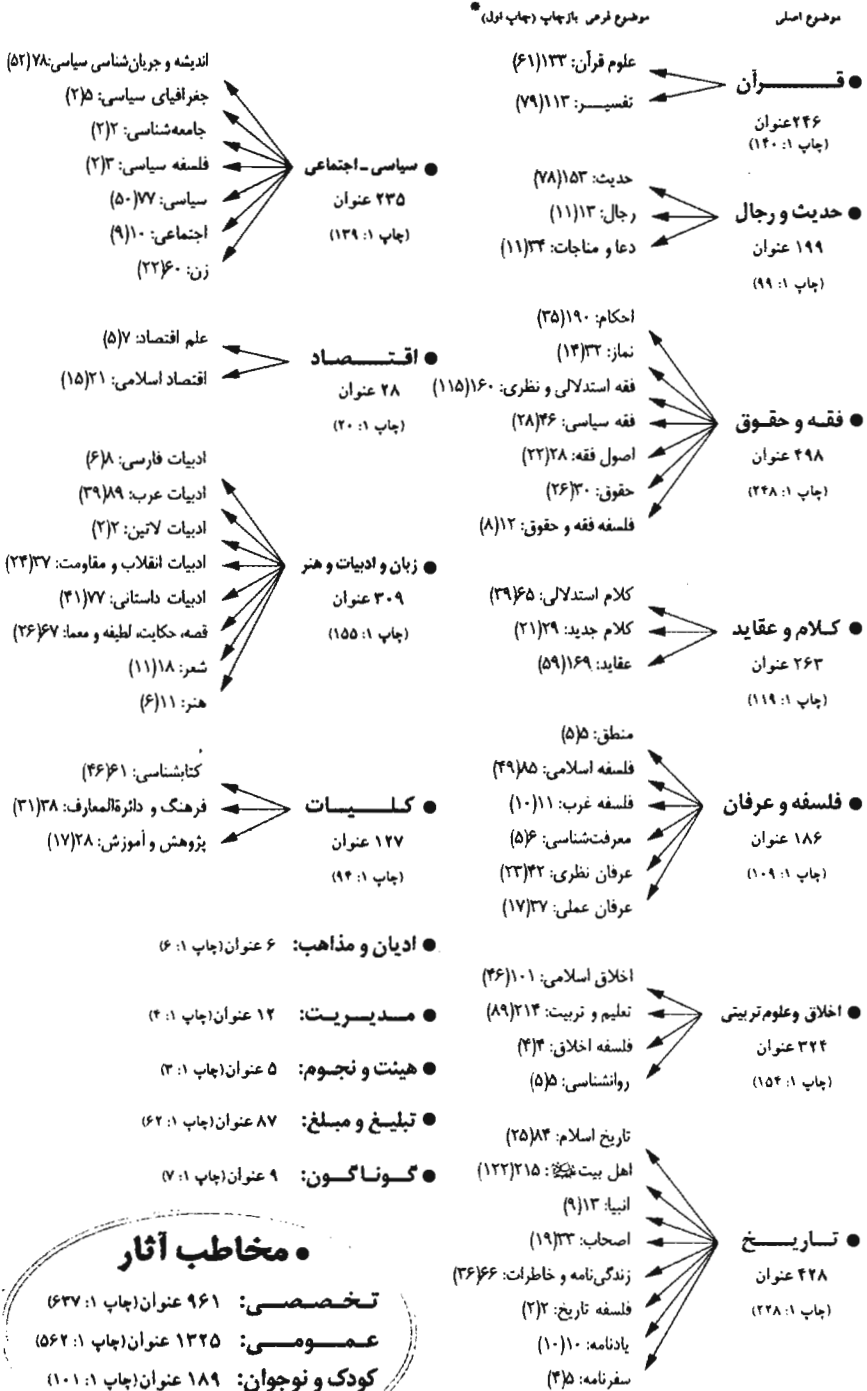 موضوع اصلی
موضوع فرعی بازچاپ (چاپ اول)*
● قـــرآن
۲۴۶عنوان
(چاپ ۱: ۱۴۰)
علوم قرآن: ۱۳۳(۶۱)
تفسیـــر: ۱۱۳(۷۹)
● حدیث و رجال
۱۹۹ عنوان
(چاپ ۱: ۹۹)
حدیث: ۱۵۳(۷۸)
رجال: ۱۳(۱۱)
دعا و مناجات: ۳۴(۱۱)
● فقـه و حقـوق
۴۹۸ عنوان
(چاپ ۱: ۲۴۸)
احکام: ۱۹۰(۳۵)
نماز: ۳۲(۱۴)
فقه استدلالی و نظری: ۱۶۰(۱۱۵)
فقه سیاسی: ۴۶(۲۸)
اصول فقه: ۲۸(۲۲)
حقوق: ۳۰(۲۶)
فلسفه فقه و حقوق: ۱۲(۸)
● کـلام و عقـاید
۲۶۳ عنوان
(چاپ ۱: ۱۱۹)
کلام استدلالی: ۶۵(۳۹)
کلام جدید: ۲۹(۲۱)
عقاید: ۱۶۹(۵۹)
● فلسفه و عرفان
۱۸۶ عنوان
(چاپ ۱: ۱۰۹)
منطق: ۵(۵)
فلسفه اسلامی: ۸۵(۴۹)
فلسفه غرب: ۱۱(۱۰)
معرفت‌شناسی: ۶(۵)
عرفان نظری: ۴۲(۲۳)
عرفان عملی: ۳۷(۱۷)
● اخلاق وعلوم‌تربیتی
۳۲۴ عنوان
(چاپ ۱: ۱۵۴)
اخلاق اسلامی: ۱۰۱(۴۶)
تعلیم و تربیت: ۲۱۴(۸۹)
فلسفه اخلاق: ۴(۴)
روانشناسی: ۵(۵)
● تـاریـــخ
۴۲۸ عنوان
(چاپ ۱: ۲۲۸)
تاریخ اسلام: ۸۴(۲۵)
اهل بیت: ۲۱۵(۱۲۲)
انبیا: ۱۳(۹)
اصحاب: ۳۳(۱۹)
زندگی‌نامه و خاطرات: ۶۶(۳۶)
فلسفه تاریخ: ۲(۲)
یادنامه: ۱۰(۱۰)
سفرنامه: ۵(۴)
● سیاسی ـ اجتماعی
۲۳۵ عنوان
(چاپ ۱: ۱۳۹)
اندیشه و جریان‌شناسی سیاسی:۷۸(۵۲)
جغرافیای سیاسی: ۵(۲)
جامعه‌شناسی: ۲(۲)
فلسفه سیاسی: ۳(۲)
سیاسی: ۷۷(۵۰)
اجتماعی: ۱۰(۹)
زن: ۶۰(۲۲)
● اقـتــصـاد
۲۸ عنوان
(چاپ ۱: ۲۰)
علم اقتصاد: ۷(۵)
اقتصاد اسلامی: ۲۱(۱۵)
● زبان و ادبیات و هنر
۳۰۹ عنوان
(چاپ ۱: ۱۵۵)
ادبیات فارسی: ۸(۶)
ادبیات عرب: ۸۹(۳۹)
ادبیات لاتین: ۲(۲)
ادبیات انقلاب و مقاومت: ۳۷(۲۴)
ادبیات داستانی: ۷۷(۴۱)
قصه، حکایت، لطیفه و معما: ۶۷(۲۶)
شعر: ۱۸(۱۱)
هنر: ۱۱(۶)
● کـلــیــات
۱۲۷ عنوان
(چاپ ۱: ۹۴)
کتابشناسی: ۶۱(۴۶)
فرهنگ و دائرةالمعارف: ۳۸(۳۱)
پژوهش و آموزش: ۲۸(۱۷)
● ادیان و مذاهب: ۶ عنوان(چاپ ۱: ۶)
● مــدیــریـت: ۱۲ عنوان(چاپ ۱: ۴)
● هیئت و نجـوم: ۵ عنوان(چاپ ۱: ۳)
● تبلیـغ و مبـلغ: ۸۷ عنوان(چاپ ۱: ۶۲)
● گــونـاگــون: ۹ عنوان(چاپ ۱: ۷)
● مخاطب آثار
تـخـصـصـی: ۹۶۱ عنوان(چاپ ۱: ۶۳۷)
عـمــومــی: ۱۳۲۵ عنوان(چاپ ۱: ۵۶۲)
کودک و نوجوان: ۱۸۹ عنوان(چاپ ۱: ۱۰۱)